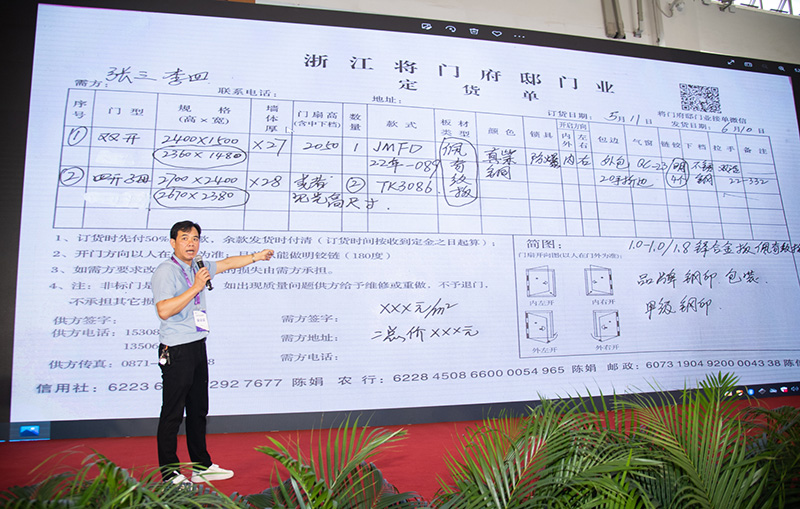 浙江将门府邸门业
定货单
需方：张三 李四
联系电话：
地址：
订货日期：5月11
将门府邸门业接单微信
发货日期：6月10日
序号 门型 规格（高×宽） 墙体厚 门扇高（含中下档） 数量 款式 板材类型 颜色 锁具 开启方向 内外 左右 包边 气窗 链铰 下档 拉手 备注
① 双开 2400×1500 ×27 2050 1 JMFD 佩有终板 真紫铜 防爆 内 右 外包 QC-23 明 不锈钢
2360×1480 22年-089
② 四开子母 2700×2400 ×28 ② TK3086 4个 22-332
2670×2380 尺寸
1、订货时先付50% 款，余款发货时付清（订货时间按收到定金之日起算）；
2、开门方向以人在 为准； 能做明铰链（180度）
3、如需方要求改 的损失由需方承担。
4、注：非标门是 如出现质量问题供方给予维修或重做，不予退门，
不承担其它损
简图：
门扇开向图（以人在门外为准）
内左开 内右开
外左开 外右开
1.0-1.0/1.8 锌合金板
品牌钢印 包装
甲级钢印
供方签字： 需方签字： XXX元/m²
供方电话：15308 需方地址： 总价XXX元
13506
供方传真：0871- 需方电话：
信用社：6223 6 292 7677 陈娟 农行：6228 4508 6600 0054 965 陈娟 邮政：6073 1904 9200 0043 38